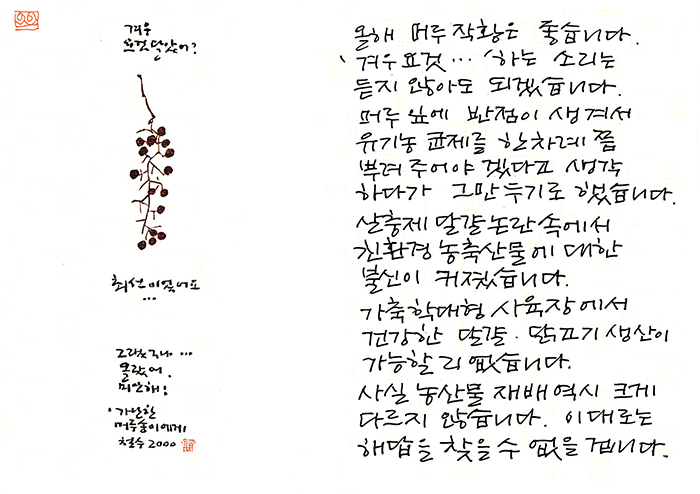 겨우
요것 달았어?
최선이었어요
...
그랬구나 ...
몰랐어.
미안해!
'가난한
머루송이에게
철수 2000
올해 머루 작황은 좋습니다.
'겨우 요것... '하는 소리는
듣지 않아도 되겠습니다.
머루 잎에 반점이 생겨서
유기농 균제를 한차례쯤
뿌려 주어야 겠다고 생각
하다가 그만 두기로 했습니다.
살충제 달걀 논란 속에서
친환경 농축산물에 대한
불신이 커졌습니다.
가축학대형 사육장에서
건강한 달걀·닭고기 생산이
가능할 리 없습니다.
사실 농산물 재배 역시 크게
다르지 않습니다. 이대로는
해답을 찾을 수 없을 겁니다.